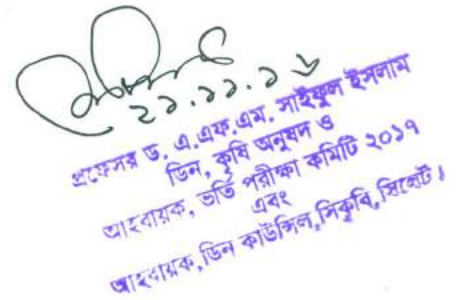 ২১.১১.১৬
প্রফেসর ড. এ.এফ.এম. সাইফুল ইসলাম
ডিন, কৃষি অনুষদ ও
আহবায়ক, ভর্তি পরীক্ষা কমিটি ২০১৭
এবং
আহবায়ক, ডিন কাউন্সিল,সিকৃবি,সিলেট।